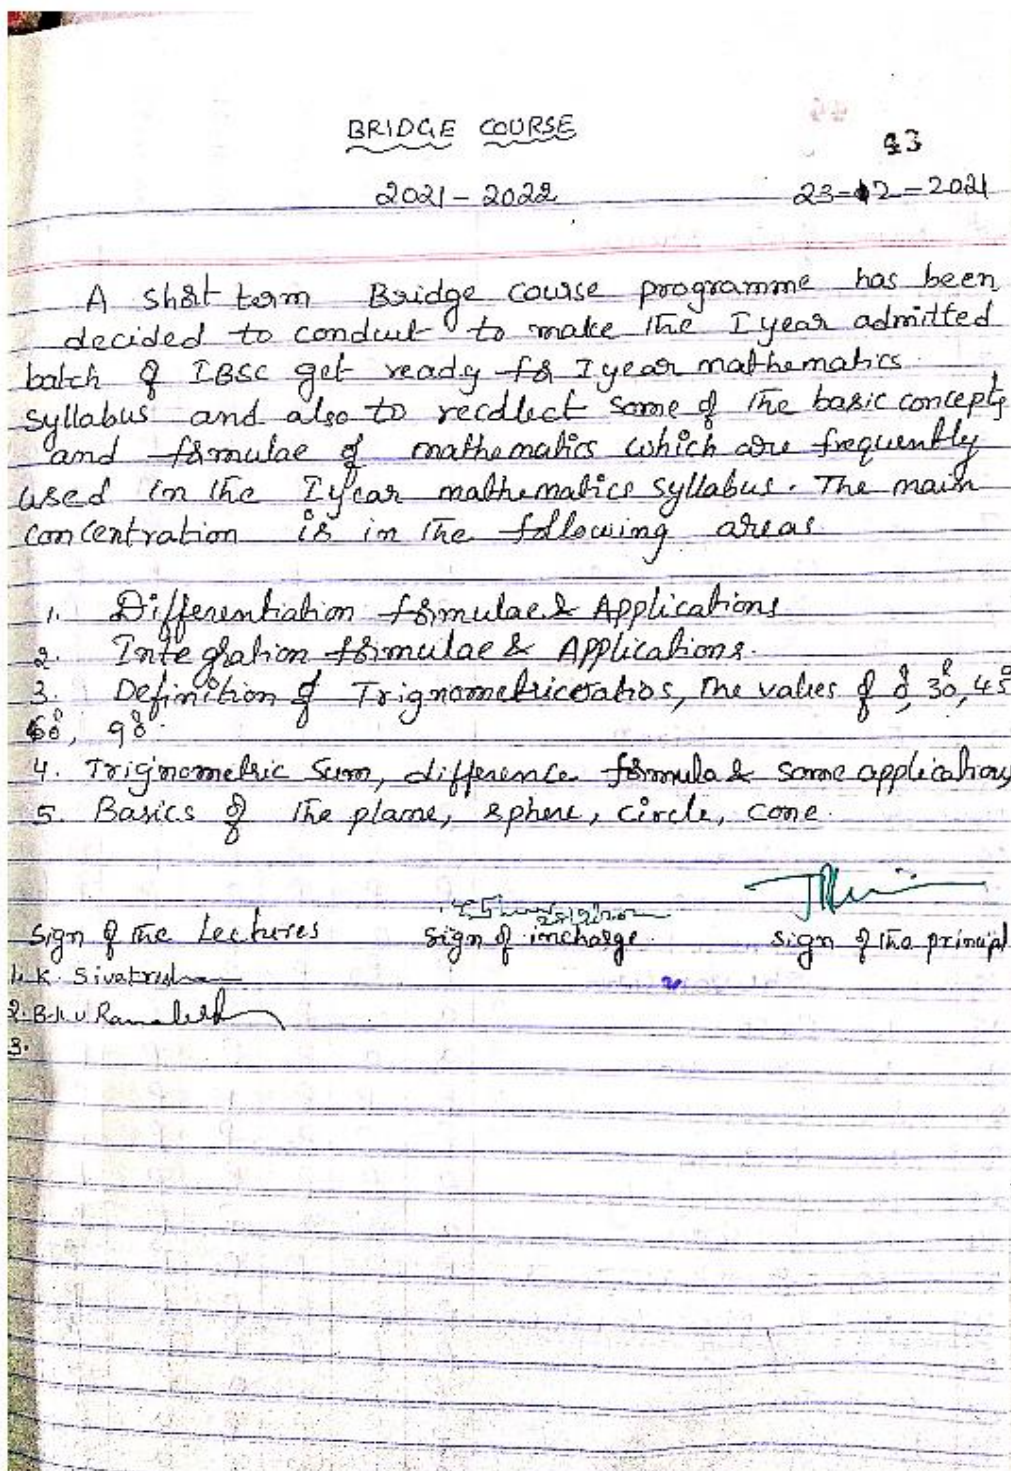 BRIDGE COURSE
43
2021-2022 23-12-2021
A short term Bridge course programme has been
decided to conduct to make the I year admitted
batch of I BSC get ready for I year mathematics
syllabus and also to recollect some of the basic concepts
and formulae of mathematics which are frequently
used in the I year mathematics syllabus. The main
concentration is in the following areas
1. Differentiation formulae & Applications
2. Integration formulae & Applications.
3. Definition of Trignometric ratios, the values of 0°, 30°, 45°
60°, 90°.
4. Trignometric Sum, difference formula & some applications
5. Basics of the plane, sphere, circle, cone.
Sign of the Lectures sign of incharge. sign of the principal
1. K. Sivakrishna
2. B.
3.